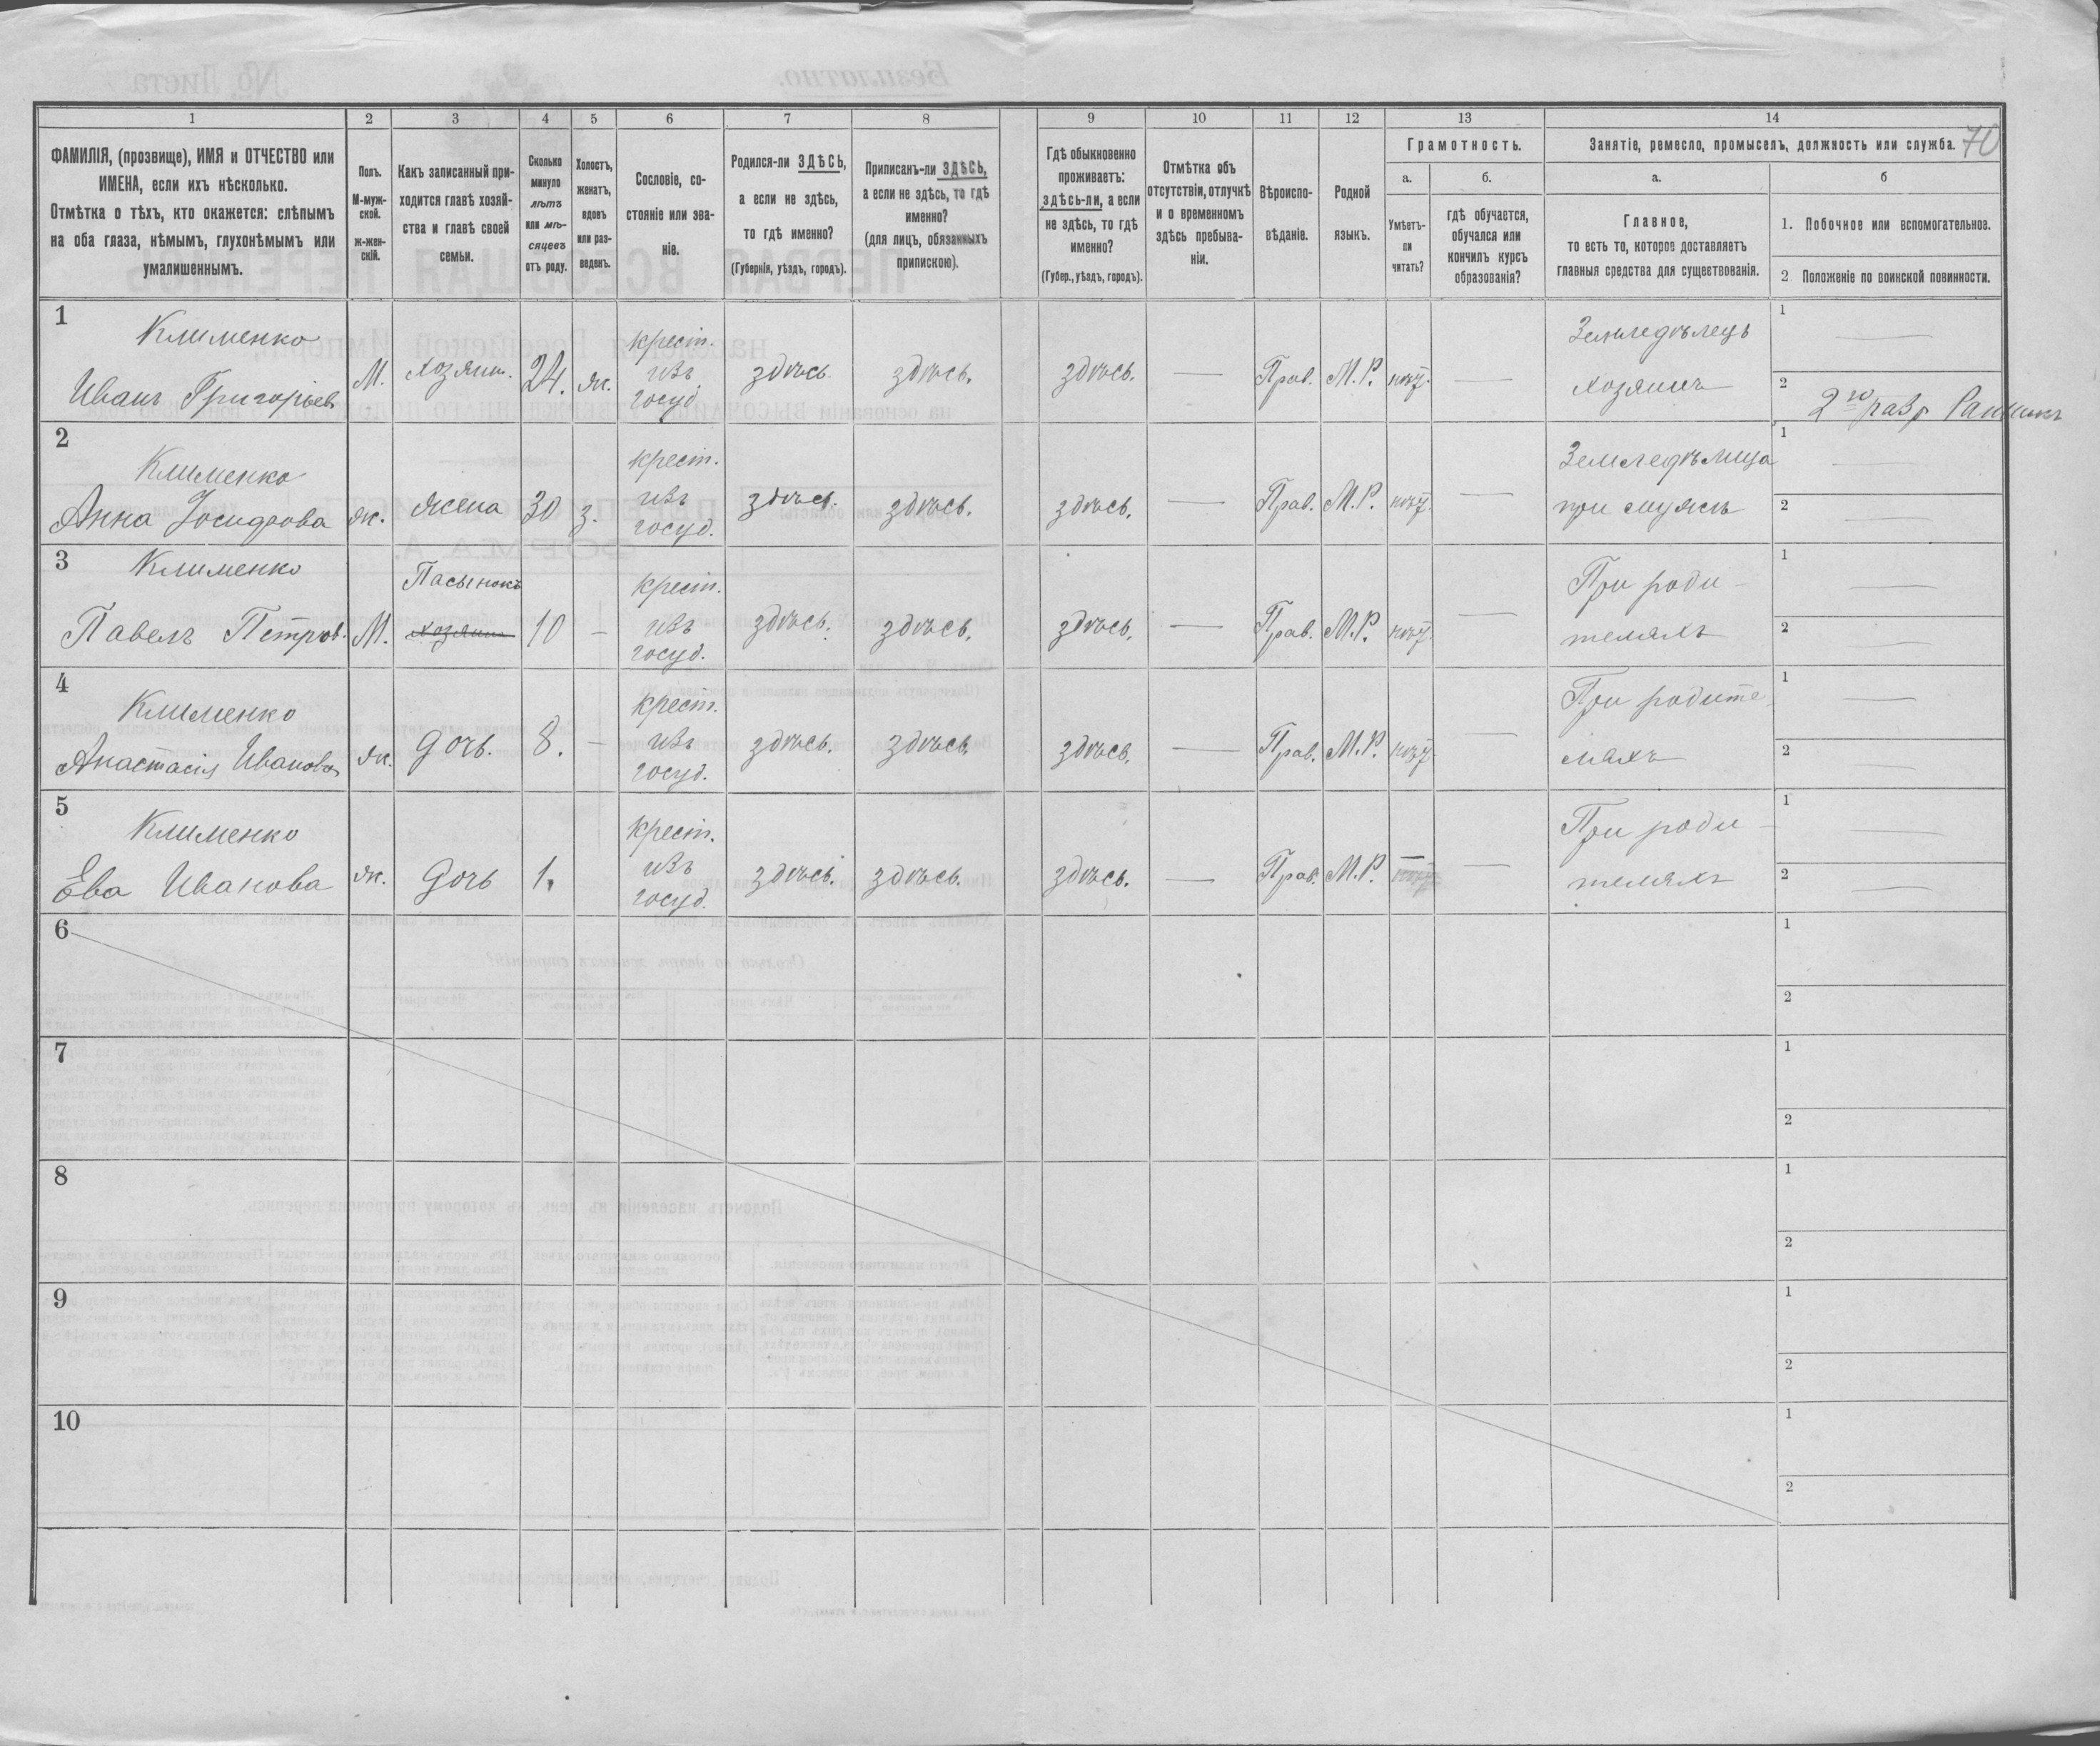 70
1 2 3 4 5 6 7 8 9 10 11 12 13 14
ФАМИЛІЯ, (прозвище), ИМЯ и ОТЧЕСТВО или
ИМЕНА, если ихъ нѣсколько.
Отмѣтка о тѣхъ, кто окажется: слѣпымъ
на оба глаза, нѣмымъ, глухонѣмымъ или
умалишеннымъ.
Полъ.
М-муж-
ской.
ж-жен-
скій.
Какъ записанный при-
ходится главѣ хозяй-
ства и главѣ своей
семьи.
Сколько
минуло
лѣтъ
или мѣ-
сяцевъ
отъ роду.
Холостъ,
женатъ,
вдовъ
или раз-
веденъ.
Сословіе, со-
стояніе или зва-
ніе.
Родился-ли ЗДѢСЬ,
а если не здѣсь,
то гдѣ именно?
(Губернія, уѣздъ, городъ).
Приписанъ-ли ЗДѢСЬ,
а если не здѣсь, то гдѣ
именно?
(для лицъ, обязанныхъ
припискою).
Гдѣ обыкновенно
проживаетъ:
здѣсь-ли, а если
не здѣсь, то гдѣ
именно?
(Губер., уѣздъ, городъ).
Отмѣтка объ
отсутствіи, отлучкѣ
и о временномъ
здѣсь пребыва-
ніи.
Вѣроиспо-
вѣданіе.
Родной
языкъ.
Грамотность.
а.
Умѣетъ-
ли
читать?
б.
гдѣ обучается,
обучался или
кончилъ курсъ
образованія?
Занятіе, ремесло, промыселъ, должность или служба.
а.
Главное,
то есть то, которое доставляетъ
главныя средства для существованія.
б
1. Побочное или вспомогательное.
2 Положеніе по воинской повинности.
1
Клименко
Иванъ Григорьев
М.
хозяин.
24.
ж.
крест.
изъ
госуд
здѣсь
здѣсь.
здѣсь.
—
Прав.
М.Р.
—
Земледѣлецъ
хозяинъ
1 —
2 2го разр
2
Клименко
Анна Іосифова
ж.
жена
30
з.
крест.
изъ
госуд.
здѣсь.
здѣсь.
здѣсь.
—
Прав.
М.Р.
—
Земледѣлица
при мужѣ
1 —
2 —
3
Клименко
Павелъ Петров.
М.
Пасынокъ
хозяин
10
—
крест.
изъ
госуд.
здѣсь.
здѣсь.
здѣсь.
—
Прав.
М.Р.
—
При роди-
теляхъ
1 —
2 —
4
Клименко
Анастасія Иванова
ж.
дочь.
8.
—
крест.
изъ
госуд.
здѣсь.
здѣсь.
здѣсь.
—
Прав.
М.Р.
—
При родите
ляхъ
1 —
2 —
5
Клименко
Ева Иванова
ж.
дочь
1.
крест.
изъ
госуд.
здѣсь.
здѣсь.
здѣсь.
—
Прав.
М.Р.
—
—
При роди-
теляхъ
1 —
2 —
6
1
2
7
1
2
8
1
2
9
1
2
10
1
2